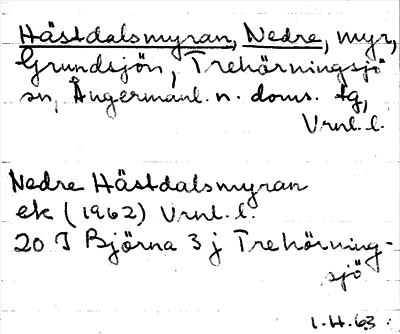 Hästdalsmyran, Nedre, myr,
Grundsjön, Trehörningsjö
sn, Ångermanl. n. doms. tg,
Vrnl. l.
Nedre Hästdalsmyran
ek (1962) Vrnl. l.
20 I Björna 3 j Trehörning-
sjö
1.H.63